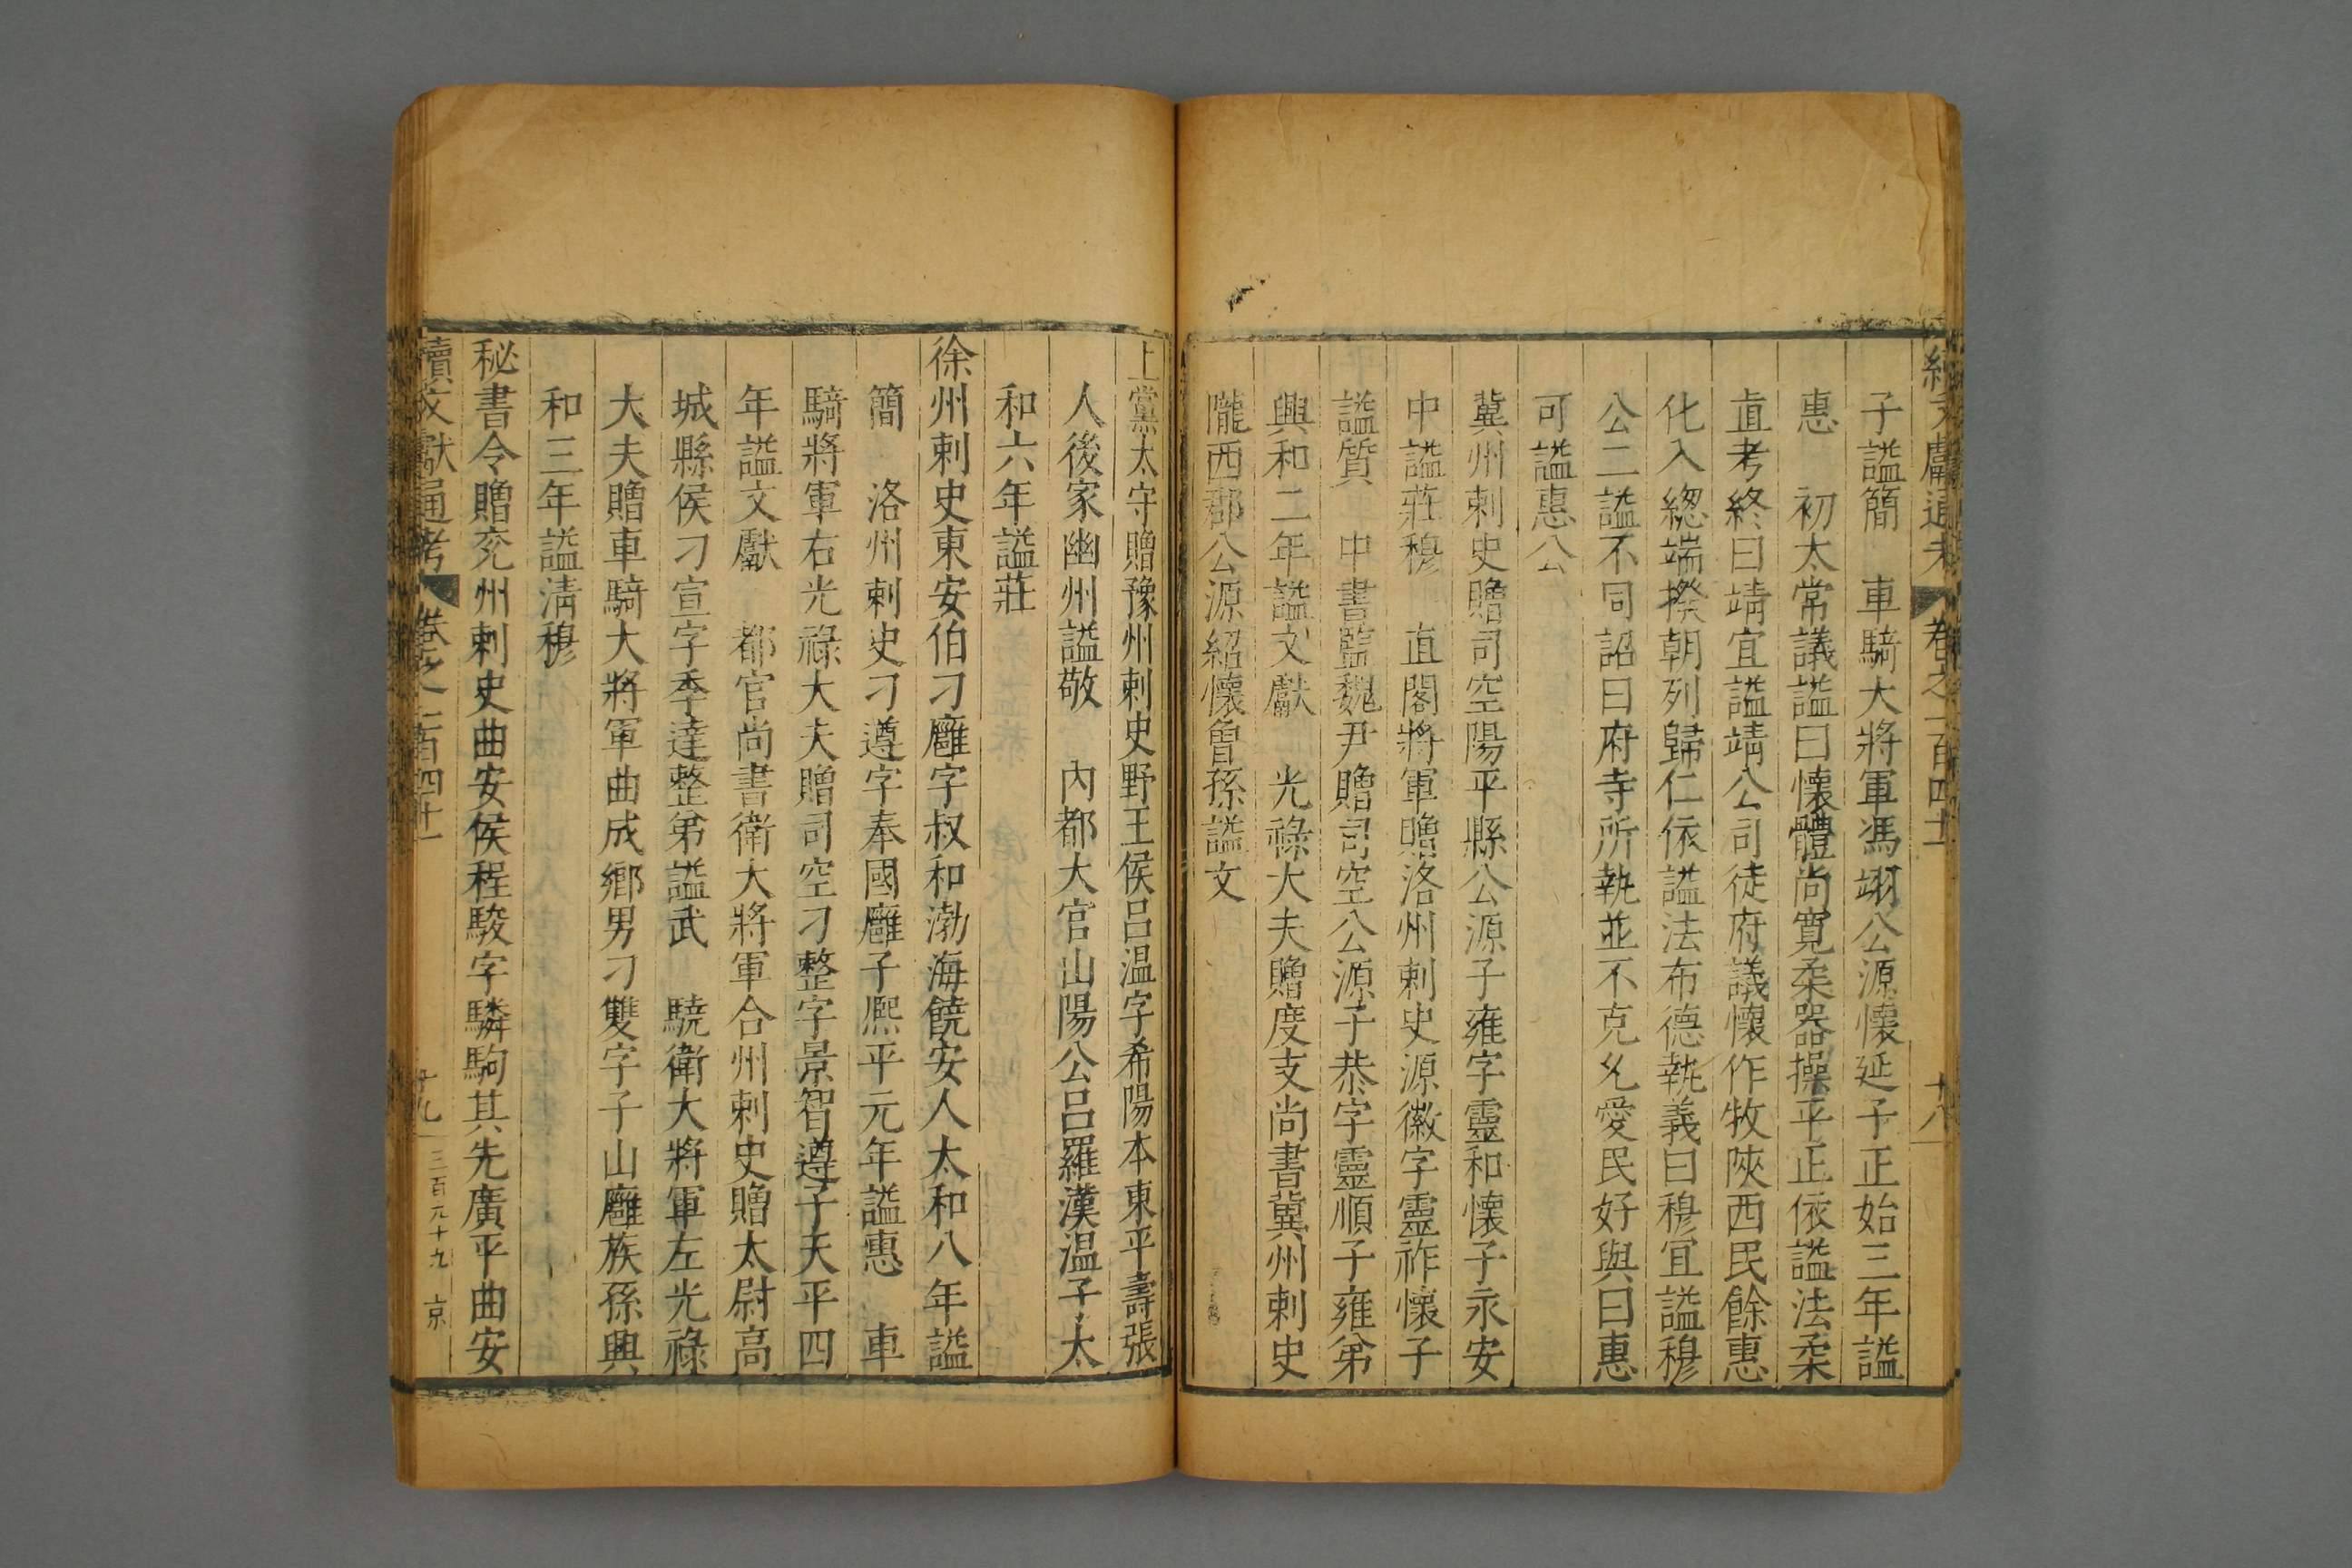 續文獻通考 卷之一百四十一 十八
子謚簡 車騎大將軍馮翊公源懷延子正始三年謚
惠 初太常議謚曰懷體尚寬柔器操平正依謚法柔
直考終曰靖宜謚靖公司徒府議懷作牧陝西民餘惠
化入總端揆朝列歸仁依謚法布德執義曰穆宜謚穆
公二謚不同詔曰府寺所執並不克允愛民好與曰惠
可謚惠公
冀州刺史贈司空陽平縣公源子雍字靈和懷子永安
中謚莊穆 直閣將軍贈洛州刺史源徽字靈祚懷子
謚質 中書監魏尹贈司空公源子恭字靈順子雍弟
興和二年謚文獻 光祿大夫贈度支尚書冀州刺史
隴西郡公源紹懷曾孫謚文
上黨太守贈豫州刺史野王侯呂温字希陽本東平壽張
人後家幽州謚敬 內都大官山陽公呂羅漢温子太
和六年謚莊
徐州刺史東安伯刁雍字叔和渤海饒安人太和八年謚
簡 洛州刺史刁遵字奉國雍子熈平元年謚惠 車
騎將軍右光祿大夫贈司空刁整字景智遵子天平四
年謚文獻 都官尚書衛大將軍合州刺史贈太尉高
城縣侯刁宣字季達整弟謚武 驍衛大將軍左光祿
大夫贈車騎大將軍曲成鄉男刁雙字子山雍族孫興
和三年謚淸穆
秘書令贈兖州刺史曲安侯程駿字驎駒其先廣平曲安
續文獻通考 卷之一百四十一 十九 三百九十九 京